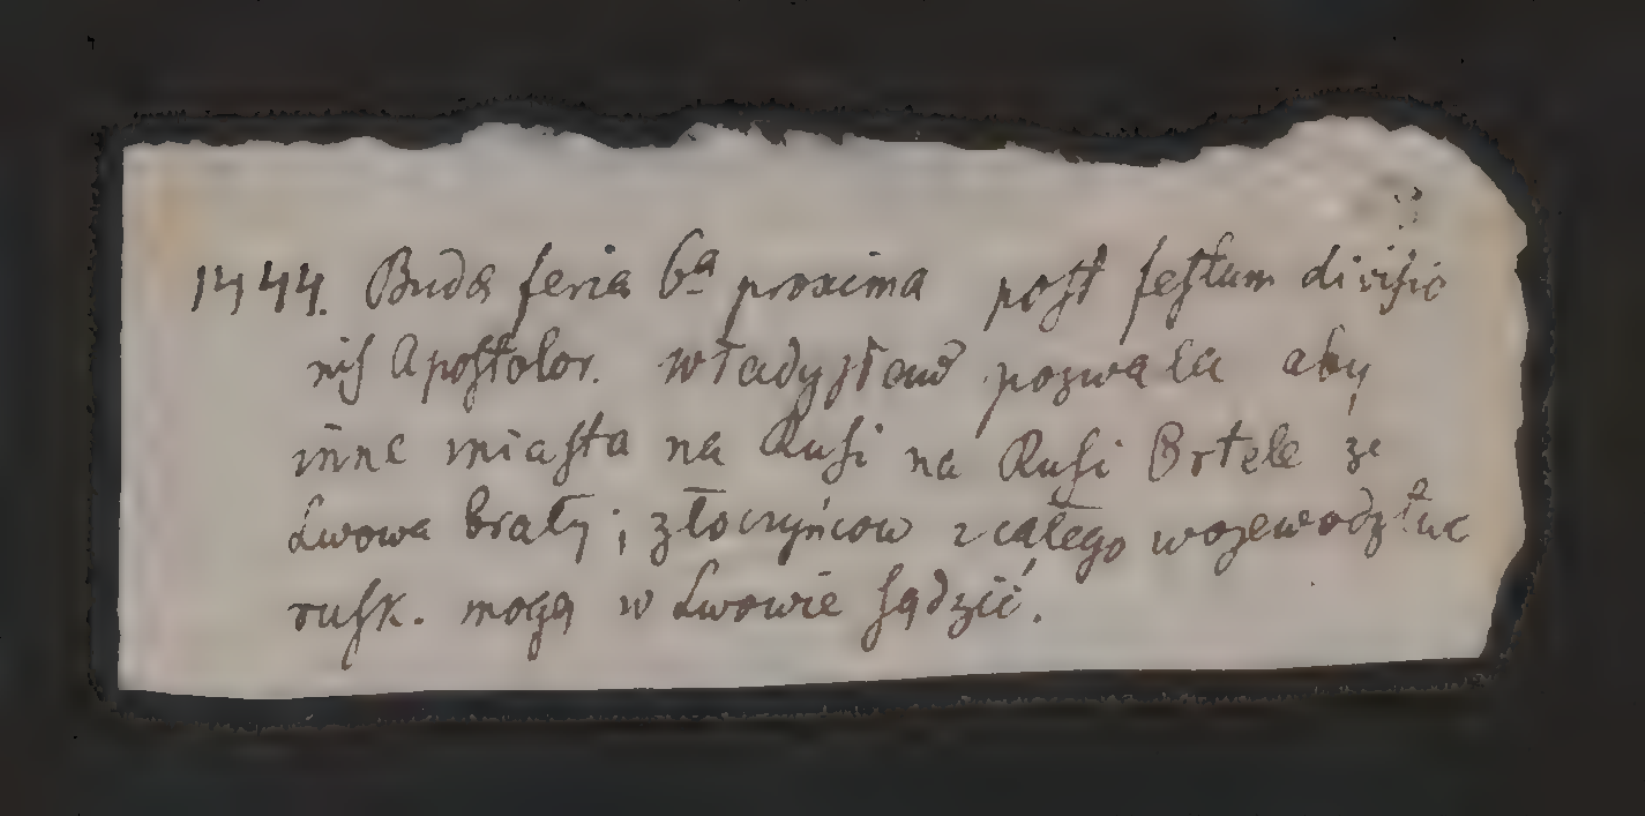 1444. Buda feria 6ª proxima post festum divisio
nis Apostolor. Władysław pozwala aby
inne miasta na Rusi na Rusi Ortele ze
Lwowa brały; złoczyńcow z całego wojewodztwa
rusk. mogą w Lwowie sądzić.